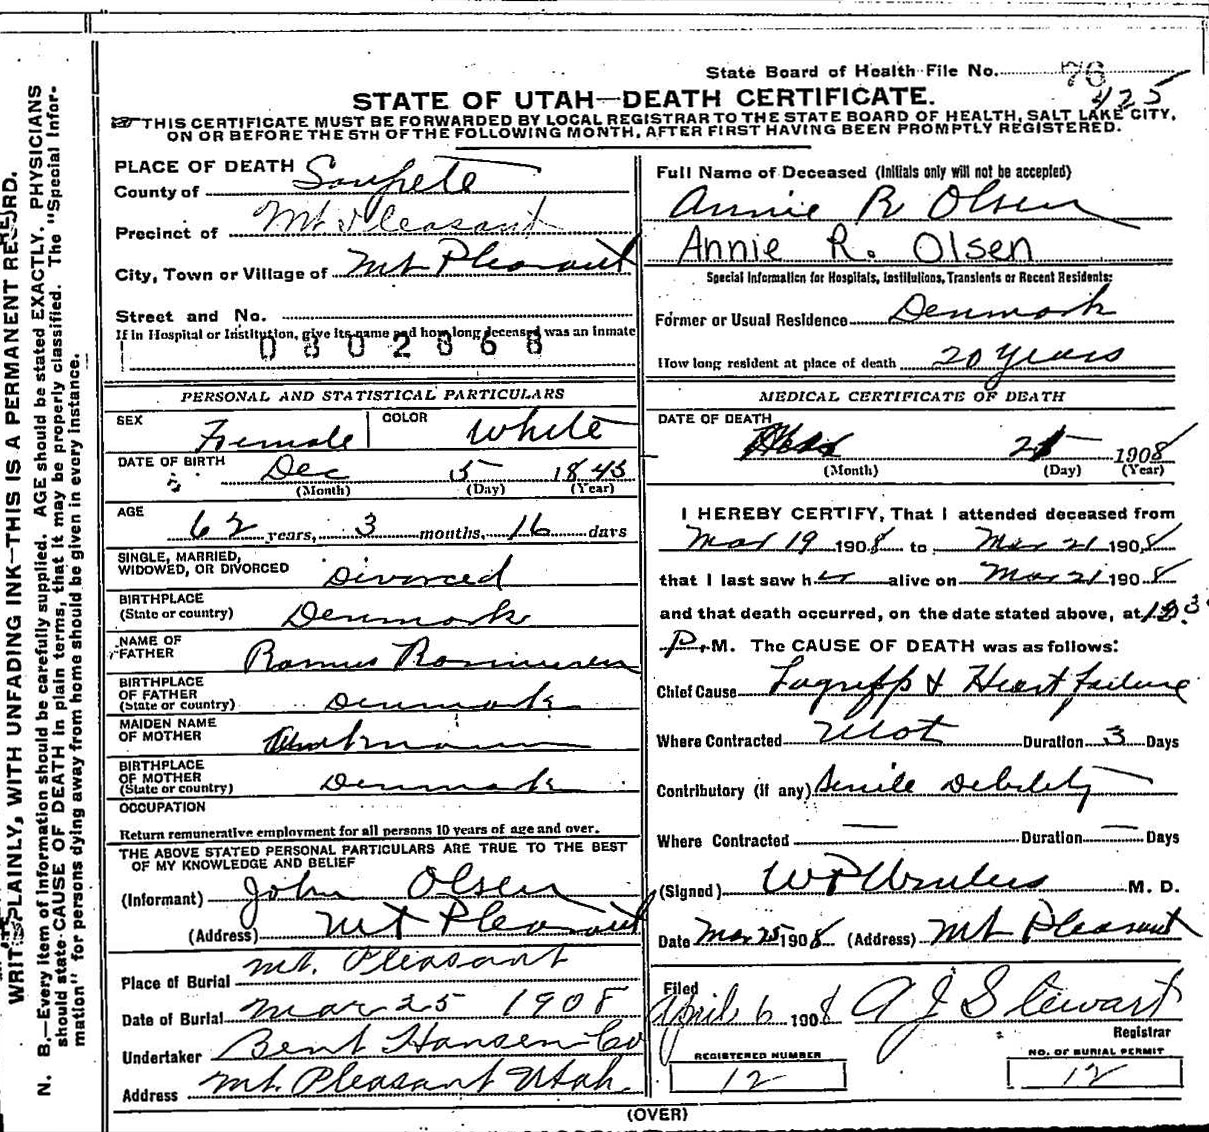 State Board of Health File No. 76
425
STATE OF UTAH—DEATH CERTIFICATE.
THIS CERTIFICATE MUST BE FORWARDED BY LOCAL REGISTRAR TO THE STATE BOARD OF HEALTH, SALT LAKE CITY,
ON OR BEFORE THE 5TH OF THE FOLLOWING MONTH, AFTER FIRST HAVING BEEN PROMPTLY REGISTERED.
PLACE OF DEATH
County of Sanpete
Precinct of Mt Pleasant
City, Town or Village of Mt Pleasant
Street and No.
If in Hospital or Institution, give its name and how long deceased was an inmate
0302868
PERSONAL AND STATISTICAL PARTICULARS
SEX Female COLOR White
DATE OF BIRTH Dec 5 1845
(Month) (Day) (Year)
AGE
62 years, 3 months, 16 days
SINGLE, MARRIED,
WIDOWED, OR DIVORCED Divorced
BIRTHPLACE
(State or country) Denmark
NAME OF
FATHER Rasmus Rasmussen
BIRTHPLACE
OF FATHER
(State or country) Denmark
MAIDEN NAME
OF MOTHER
BIRTHPLACE
OF MOTHER
(State or country) Denmark
OCCUPATION
Return remunerative employment for all persons 10 years of age and over.
THE ABOVE STATED PERSONAL PARTICULARS ARE TRUE TO THE BEST
OF MY KNOWLEDGE AND BELIEF
(Informant) John Olsen
(Address) Mt Pleasant
Place of Burial Mt. Pleasant
Date of Burial Mar 25 1908
Undertaker Bent Hansen Co
Address Mt. Pleasant Utah.
Full Name of Deceased (Initials only will not be accepted)
Annie R Olsen
Annie R. Olsen
Special Information for Hospitals, Institutions, Transients or Recent Residents:
Former or Usual Residence Denmark
How long resident at place of death 20 years
MEDICAL CERTIFICATE OF DEATH
DATE OF DEATH
21 1908
(Month) (Day) (Year)
I HEREBY CERTIFY, That I attended deceased from
Mar 19 1908 to Mar 21 1908
that I last saw her alive on Mar 21 1908
and that death occurred, on the date stated above, at
P. M. The CAUSE OF DEATH was as follows:
Chief Cause Lagripp & Heart failure
Where Contracted Utah Duration 3 Days
Contributory (if any) Senile Debility
Where Contracted — Duration — Days
(Signed) M. D.
Date Mar 25 1908 (Address) Mt Pleasant
Filed
April 6 1908 A J Stewart
Registrar
REGISTERED NUMBER
12
NO. OF BURIAL PERMIT
12
(OVER)
WRITE PLAINLY, WITH UNFADING INK—THIS IS A PERMANENT RECORD.
N. B.—Every item of information should be carefully supplied. AGE should be stated EXACTLY. PHYSICIANS
should state CAUSE OF DEATH in plain terms, that it may be properly classified. The "Special Infor-
mation" for persons dying away from home should be given in every instance.